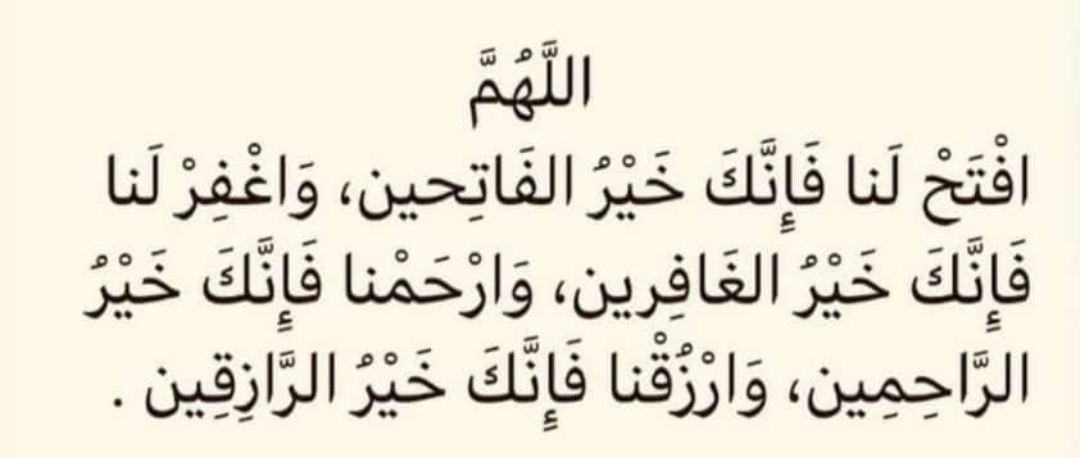 اللَّهُمَّ
افْتَحْ لَنا فَإِنَّكَ خَيْرُ الفَاتِحين، وَاغْفِرْ لَنا
فَإِنَّكَ خَيْرُ الغَافِرين، وَارْحَمْنا فَإِنَّكَ خَيْرُ
الرَّاحِمِين، وَارْزُقْنا فَإِنَّكَ خَيْرُ الرَّازِقِين .